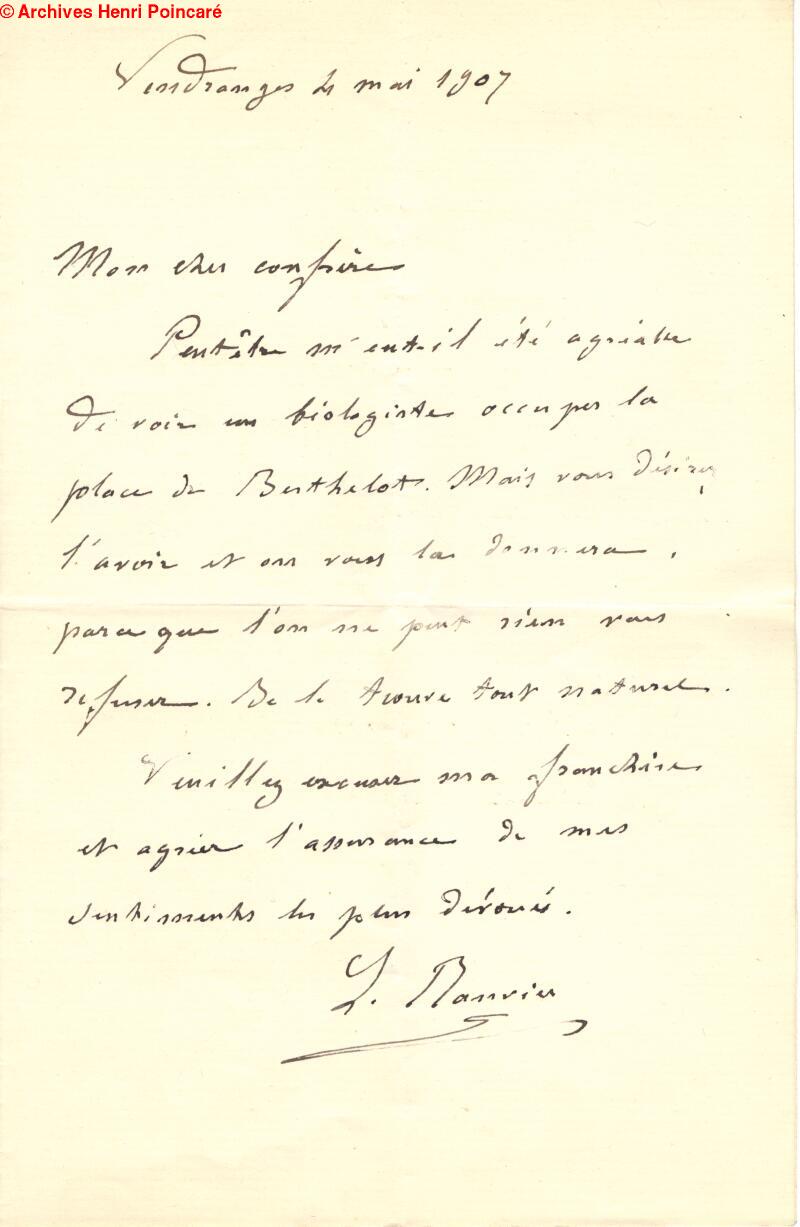 © Archives Henri Poincaré
Vendranges 4 mai 1907
Mon cher confrère
Peutêtre m'eut-il été agréable
de voir un biologiste occuper la
place de Berthelot. Mais vous désirez
l'avoir et on vous la donnera,
parce que l'on ne peut rien vous
refuser. Je le trouve tout naturel.
Veuillez excuser ma franchise
et agréer l'assurance de mes
sentiments les plus dévoués.
L. Ranvier